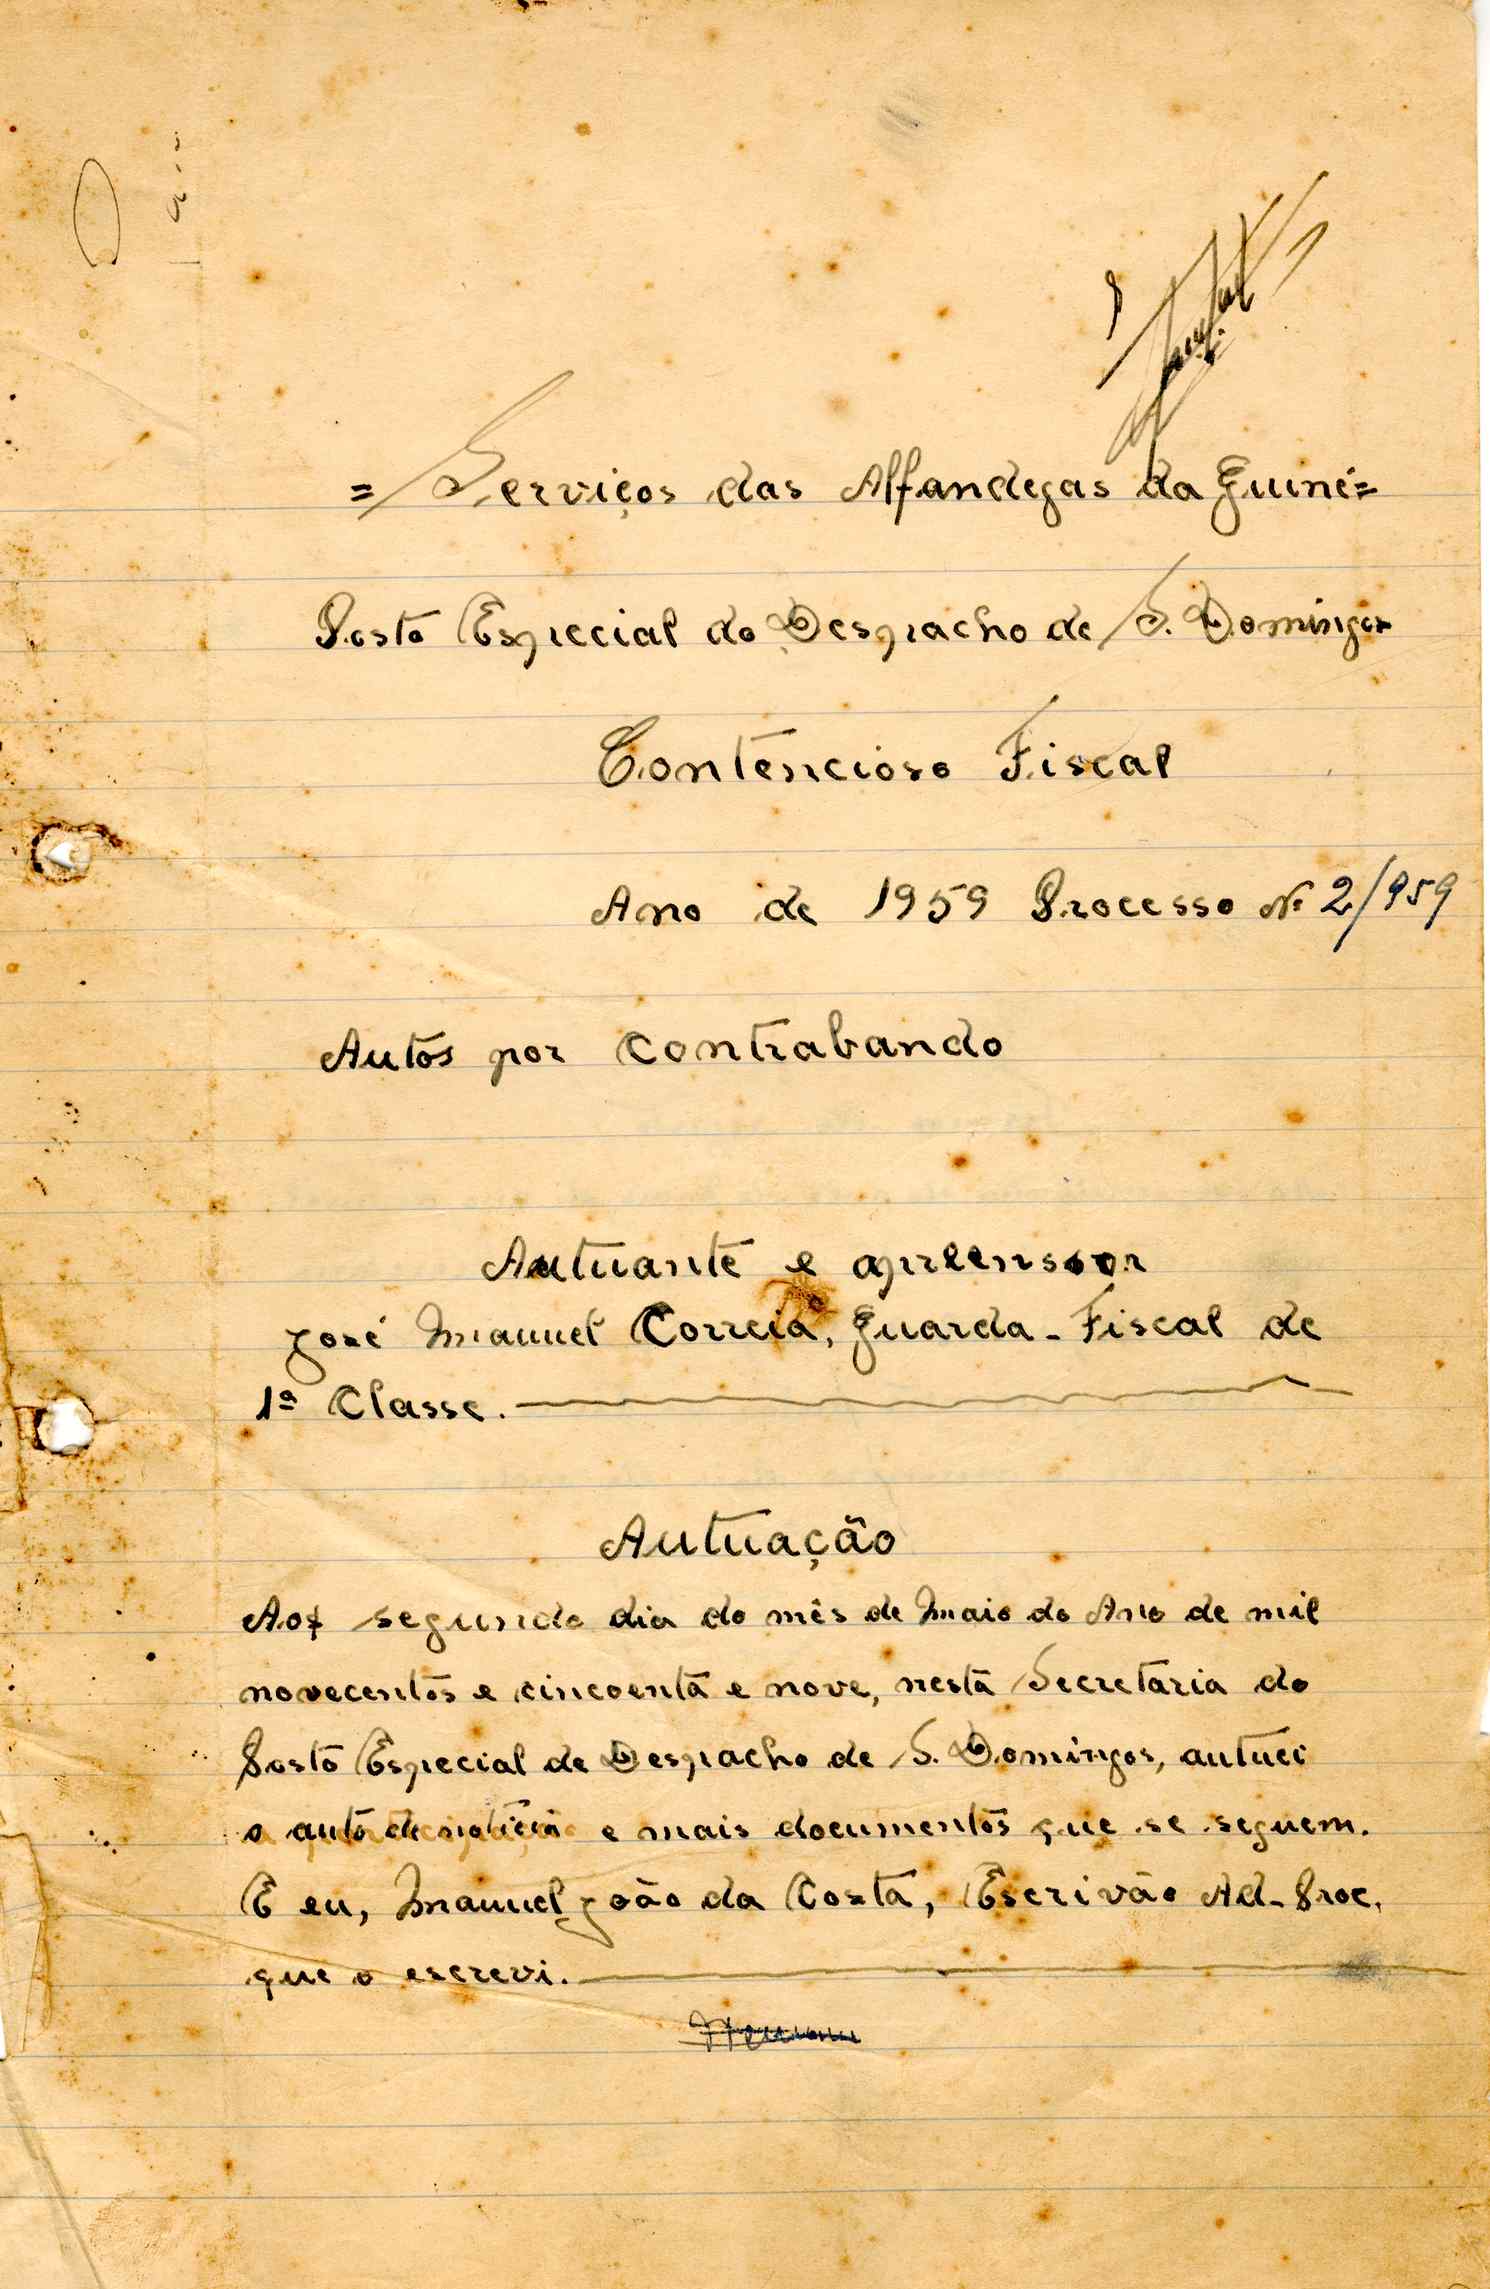 = Serviços das Alfandegas da Guiné =
Posto Especial do Despacho de S. Domingos
Contencioso Fiscal
Ano de 1959 Processo Nº 2/959
Autos por contrabando
Autuante e apreensor
José Manuel Correia, Guarda-Fiscal de
1ª Classe.
Autuação
Aos segundo dia do mês de Maio do Ano de mil
novecentos e cincoenta e nove, nesta Secretaria do
Posto Especial de Despacho de S. Domingos, autuei
o auto de notícia e mais documentos que se seguem.
E eu, Manuel João da Costa, Escrivão Ad-Proc.
que o escrevi.